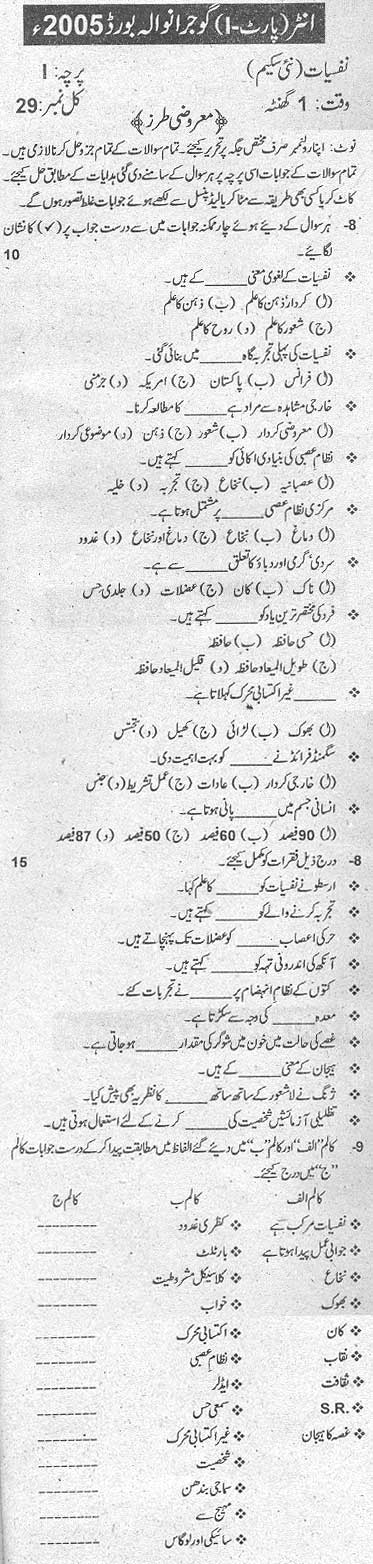 انٹر (پارٹ-I) گوجرانوالہ بورڈ 2005ء
نفسیات (نئی سکیم) پرچہ: I
وقت: 1 گھنٹہ کل نمبر: 29
﴿معروضی طرز﴾
نوٹ: اپنا رولنمبر صرف مختص جگہ پر تحریر کیجئے۔ تمام سوالات کے تمام جز و حل کرنا لازمی ہیں۔
تمام سوالات کے جوابات اسی پرچہ پر ہر سوال کے سامنے دی گئی ہدایات کے مطابق حل کیجئے۔
کاٹ کر یا کسی بھی طریقہ سے مٹا کر یا لیڈ پنسل سے لکھے ہوئے جوابات غلط تصور ہوں گے۔
8- ہر سوال کے دیے ہوئے چار ممکنہ جوابات میں سے درست جواب پر (✓) کا نشان
لگائیے۔ 10
❖ نفسیات کے لغوی معنی _____ کے ہیں۔
(ا) کردار ذہن کا علم (ب) ذہن کا علم
(ج) شعور کا علم (د) روح کا علم
❖ نفسیات کی پہلی تجربہ گاہ _____ میں بنائی گئی۔
(ا) فرانس (ب) پاکستان (ج) امریکہ (د) جرمنی
❖ خارجی مشاہدہ سے مراد ہے _____ کا مطالعہ کرنا۔
(ا) معروضی کردار (ب) شعور (ج) ذہن (د) موضوعی کردار
❖ نظام عصبی کی بنیادی اکائی کو _____ کہتے ہیں۔
(ا) عصبانیہ (ب) نخاع (ج) تجربہ (د) خلیہ
❖ مرکزی نظام عصبی _____ پر مشتمل ہوتا ہے۔
(ا) دماغ (ب) نخاع (ج) دماغ اور نخاع (د) غدود
❖ سردی، گرمی اور دباؤ کا تعلق _____ سے ہے۔
(ا) ناک (ب) کان (ج) عضلات (د) جلدی حس
❖ فرد کی مختصر ترین یاد کو _____ کہتے ہیں۔
(ا) حسی حافظہ (ب) حافظہ
(ج) طویل المیعاد حافظہ (د) قلیل المیعاد حافظہ
❖ _____ غیر اکتسابی محرک کہلاتا ہے۔
(ا) بھوک (ب) لڑائی (ج) کھیل (د) تجسّس
❖ سگمنڈ فرائڈ نے _____ کو بہت اہمیت دی۔
(ا) خارجی کردار (ب) عادات (ج) عمل تشریط (د) جنس
❖ انسانی جسم میں _____ پانی ہوتا ہے۔
(ا) 90 فیصد (ب) 60 فیصد (ج) 50 فیصد (د) 87 فیصد
8- درج ذیل فقرات کو مکمل کیجئے۔ 15
❖ ارسطو نے نفسیات کو _____ کا علم کہا۔
❖ تجربہ کرنے والے کو _____ کہتے ہیں۔
❖ حرکی اعصاب _____ کو عضلات تک پہنچاتے ہیں۔
❖ آنکھ کی اندرونی تہہ کو _____ کہتے ہیں۔
❖ کتوں کے نظام انہضام پر _____ نے تجربات کئے۔
❖ معدہ _____ کی وجہ سے سکڑتا ہے۔
❖ غصے کی حالت میں خون میں شوگر کی مقدار _____ ہو جاتی ہے۔
❖ ہیجان کے معنی _____ کے ہیں۔
❖ ژنگ نے لاشعور کے ساتھ ساتھ _____ کا نظریہ بھی پیش کیا۔
❖ تظلیلی آزمائشیں شخصیت کی _____ کرنے کے لئے استعمال ہوتی ہیں۔
9- کالم "الف" اور کالم "ب" میں دیئے گئے الفاظ میں مطابقت پیدا کر کے درست جوابات کالم
"ج" میں درج کیجئے۔
کالم الف کالم ب کالم ج
❖ نفسیات مرکب ہے ❖ کظری غدود --------
❖ جوابی عمل پیدا ہوتا ہے ❖ بارٹلٹ --------
❖ نخاع ❖ کلاسیکل مشروطیت --------
❖ بھوک ❖ خواب --------
❖ کان ❖ اکتسابی محرک --------
❖ نقاب ❖ نظام عصبی --------
❖ ثقافت ❖ ایڈلر --------
❖ S.R. ❖ سمعی حس --------
❖ غصہ کا ہیجان ❖ غیر اکتسابی محرک --------
❖ شخصیت
❖ سماجی بندھن
❖ مہیج سے
❖ سائیکی اور لوگاس